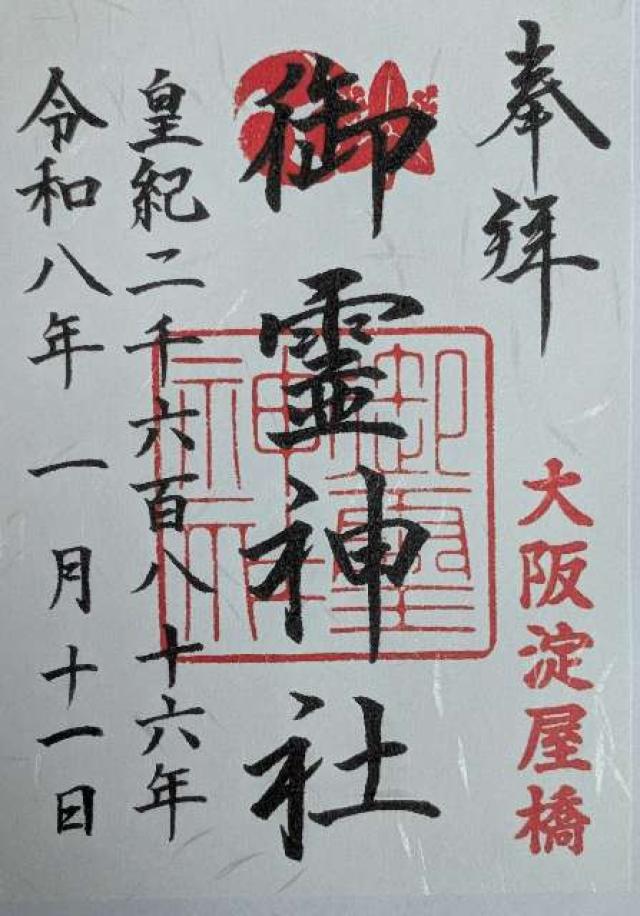 奉拝
大阪淀屋橋
御霊神社
御霊神社
皇紀二千六百八十六年
令和八年一月十一日